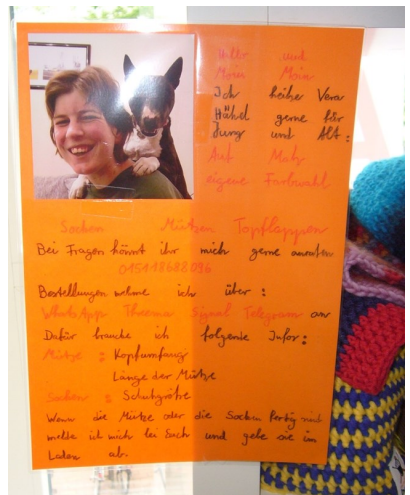 Hallo und
Moin Moin
Ich heiße Vera
Häkel gerne für
Jung und Alt:
Auf Mütz
eigene Farbwahl
Socken Mützen Topflappen
Bei Fragen könnt ihr mich gerne anrufen
015118688096
Bestellungen nehme ich über:
WhatsApp Threema Signal Telegram an
Dafür brauche ich folgende Infor:
Mütze: Kopfumfang
Länge der Mütze
Socken: Schuhgröße
Wenn die Mütze oder die Socken fertig sind
melde ich mich bei Euch und gebe sie im
Laden ab.